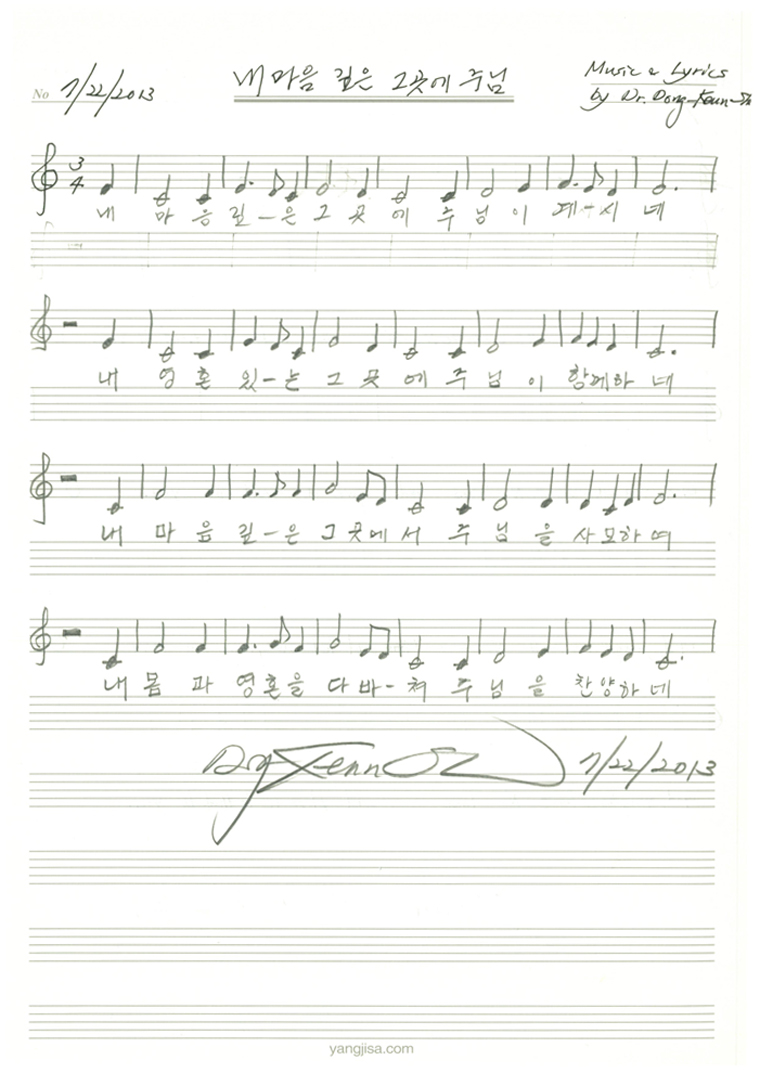 No 7/22/2013
내 마음 깊은 그곳에 주님
Music & Lyrics
by Dr. Dong-Keun
3 4
내 마 음 깊-은 그 곳 에 주 님 이 계-시 네
내 영 혼 있-는 그 곳 에 주 님 이 함께하 네
내 마 음 깊-은 그 곳에 서 주 님 을 사모하 여
내 몸 과 영혼을 다 바-쳐 주 님 을 찬양하 네
7/22/2013
yangjisa.com